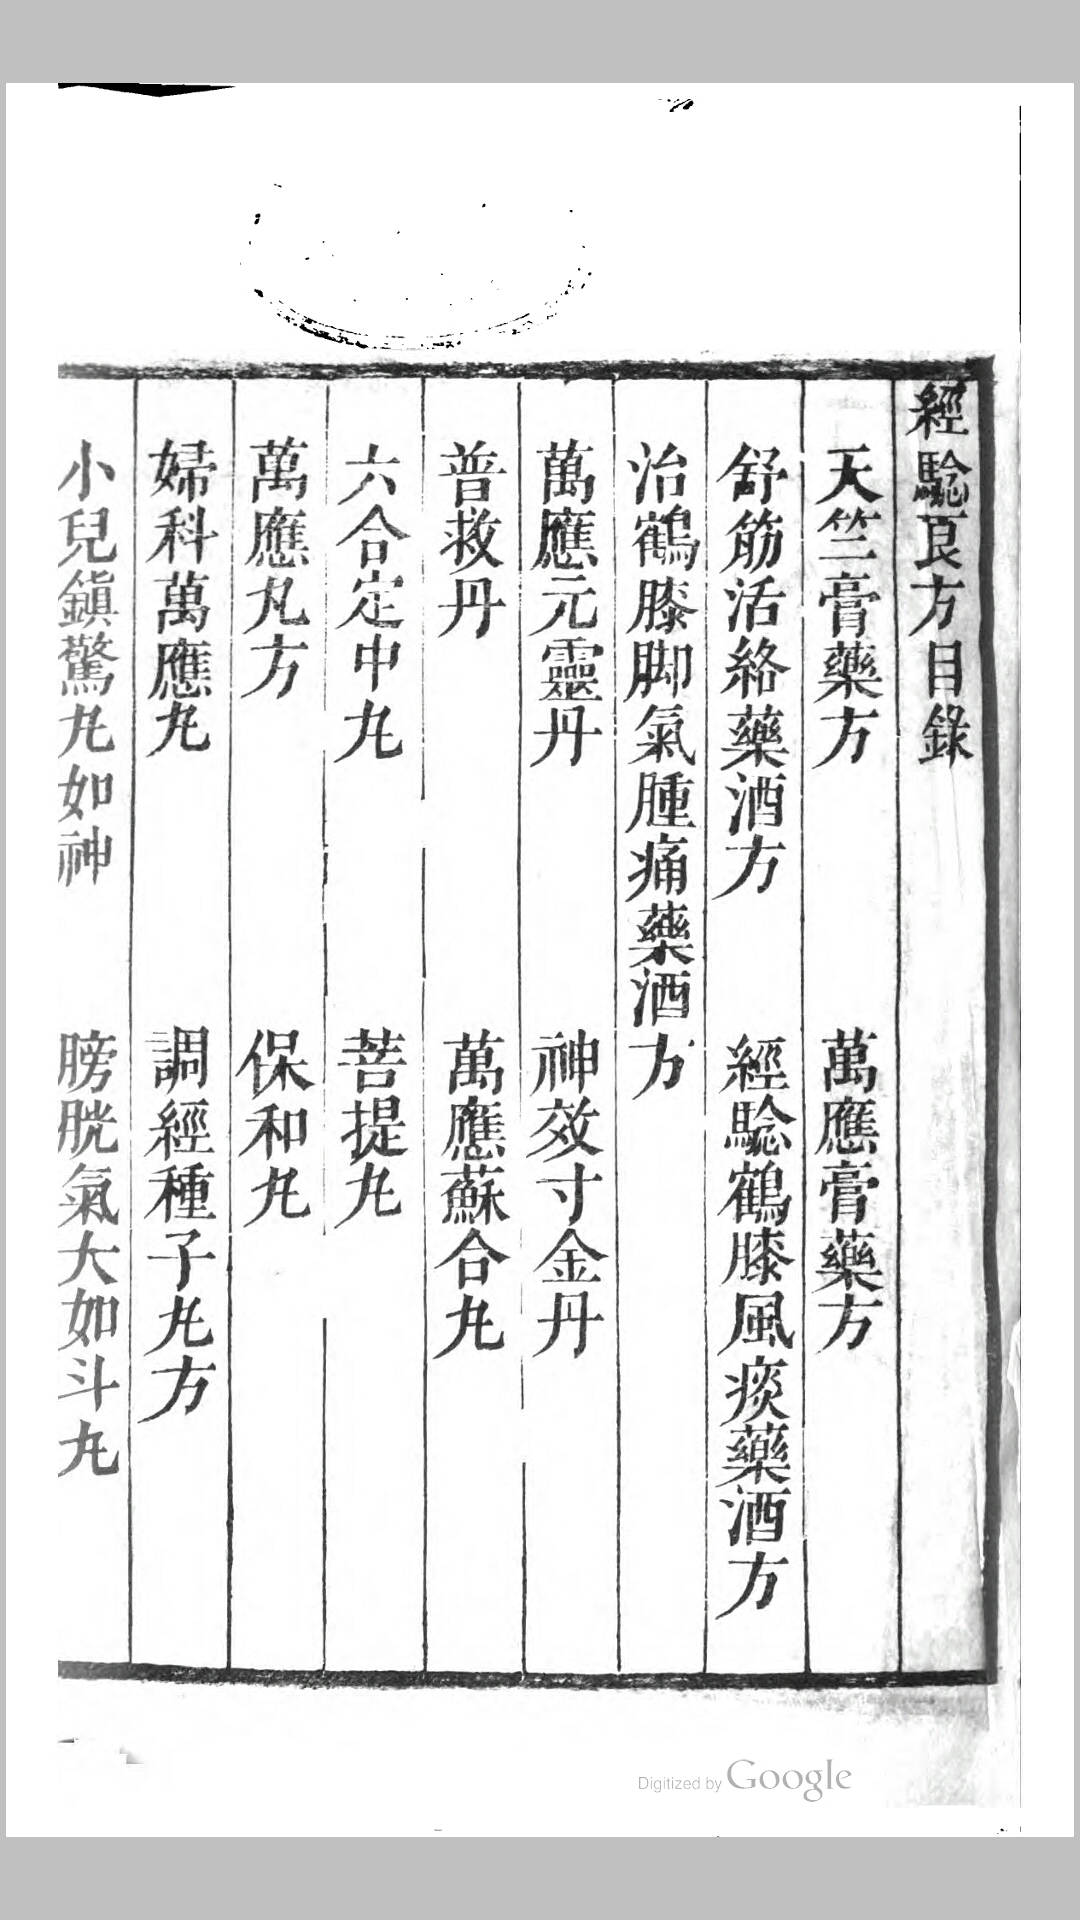 經驗良方目錄
天竺膏藥方　萬應膏藥方
舒筋活絡藥酒方　經驗鶴膝風痰藥酒方
治鶴膝脚氣腫痛藥酒方
萬應元靈丹　神效寸金丹
普救丹　萬應蘇合丸
六合定中丸　菩提丸
萬應丸方　保和丸
婦科萬應丸　調經種子丸方
小兒鎭驚丸如神　膀胱氣大如斗丸
Digitized by Google